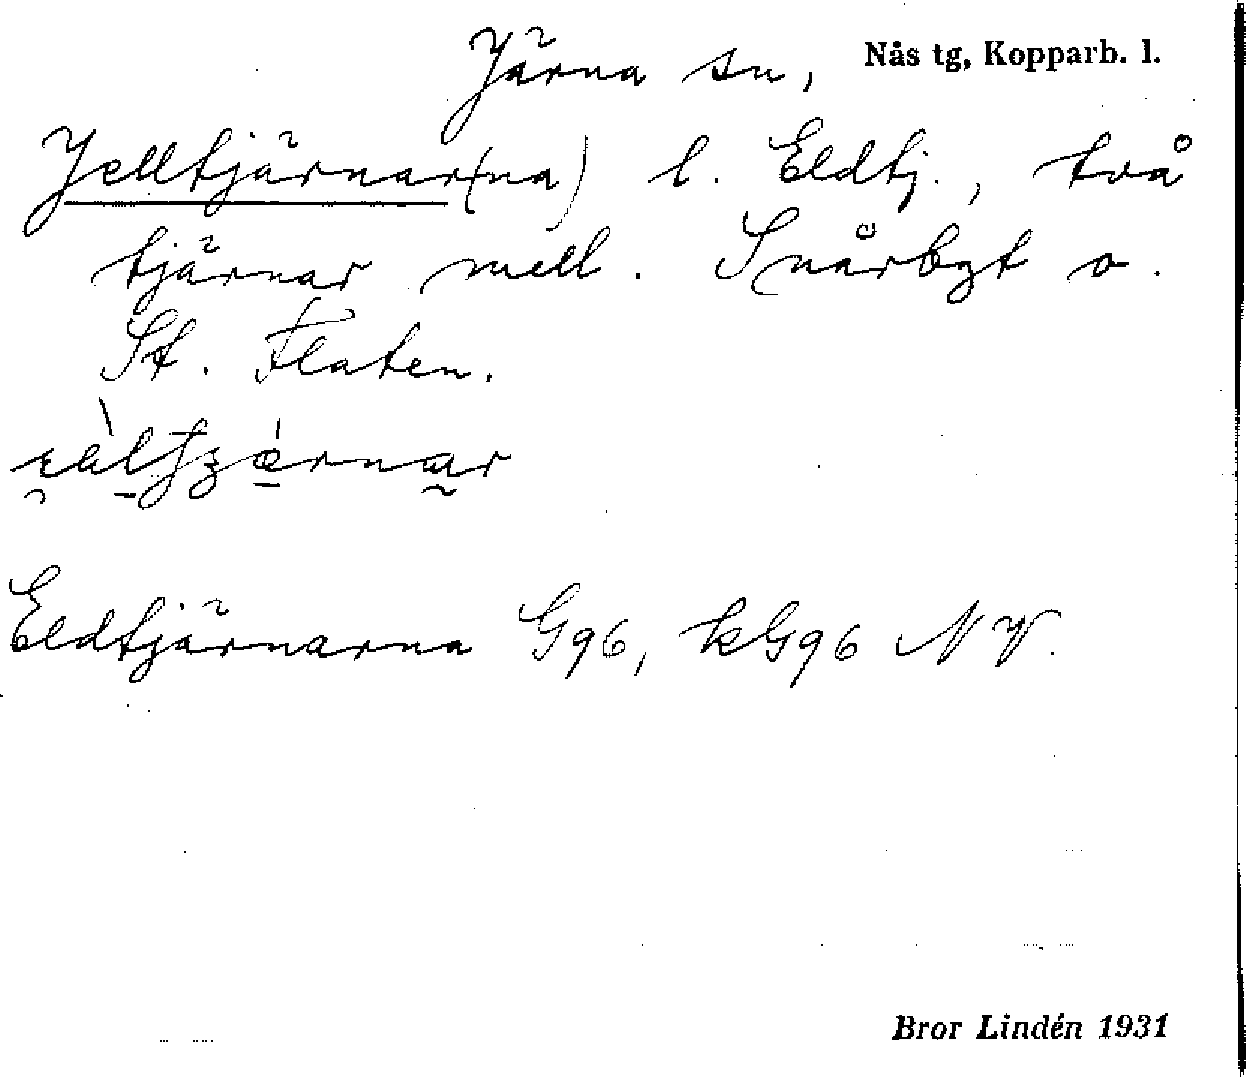 Järna sn, Nås tg, Kopparb. l.
Jelltjärnar(na) l. Eldtj., två
tjärnar mell. Snårbgt o.
St. Flaten.
Eldtjärnarna G96, kG96 NV.
Bror Lindén 1931